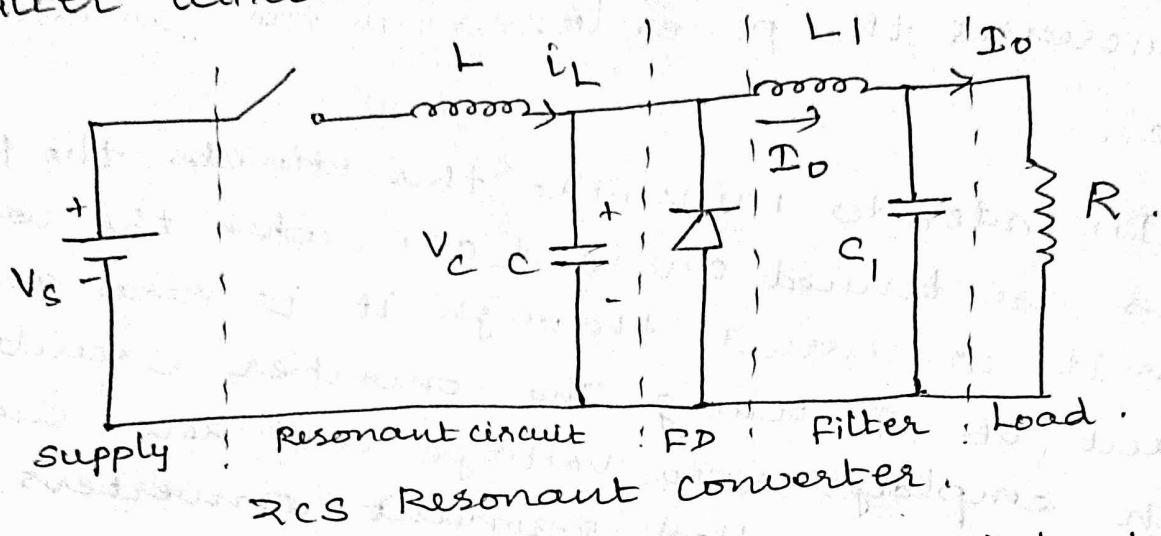 L iL L1 I0
I0
+
Vs -
Vc C +
-
C1
R.
Supply Resonant circuit FD Filter Load.
ZCS Resonant Converter.